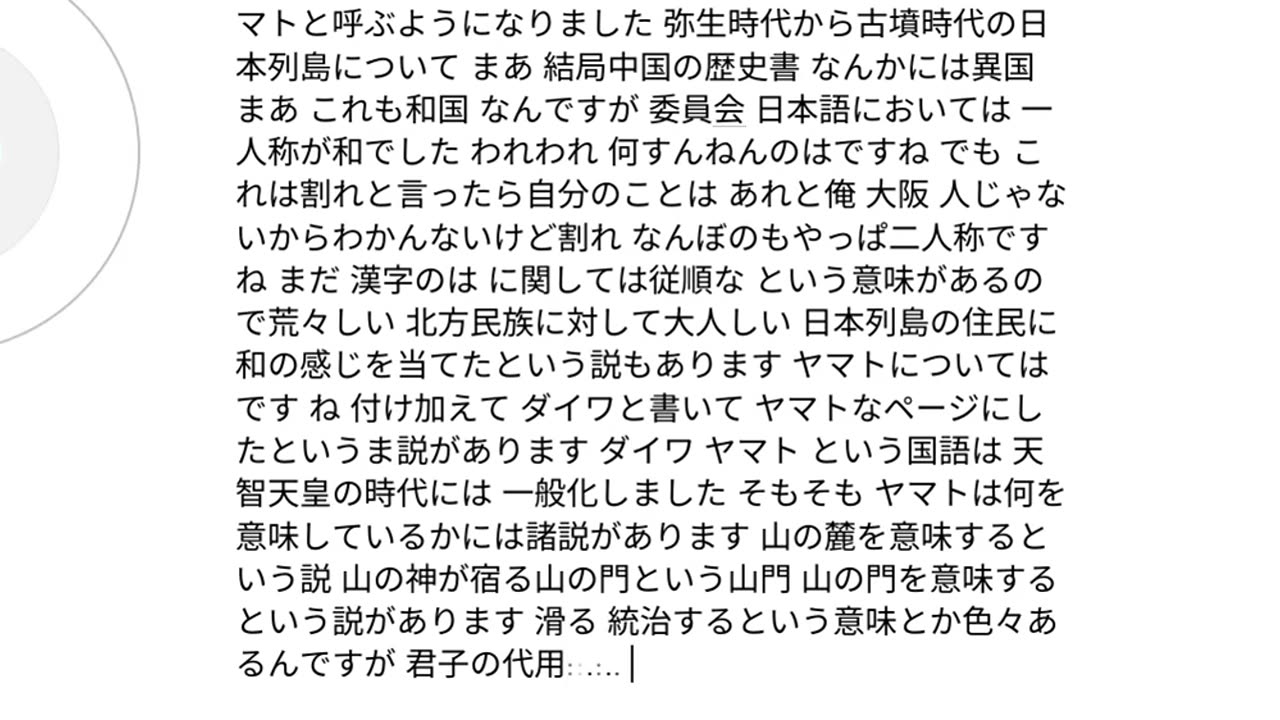 マトと呼ぶようになりました 弥生時代から古墳時代の日
本列島について まあ 結局中国の歴史書 なんかには異国
まあ これも和国 なんですが 委員会 日本語においては 一
人称が和でした われわれ 何すんねんのはですね でも こ
れは割れと言ったら自分のことは あれと俺 大阪 人じゃな
いからわかんないけど割れ なんぼのもやっぱ二人称です
ね まだ 漢字のは に関しては従順な という意味があるの
で荒々しい 北方民族に対して大人しい 日本列島の住民に
和の感じを当てたという説もあります ヤマトについては
です ね 付け加えて ダイワと書いて ヤマトなページにし
たというま説があります ダイワ ヤマト という国語は 天
智天皇の時代には 一般化しました そもそも ヤマトは何を
意味しているかには諸説があります 山の麓を意味すると
いう説 山の神が宿る山の門という山門 山の門を意味する
という説があります 滑る 統治するという意味とか色々あ
るんですが 君子の代用